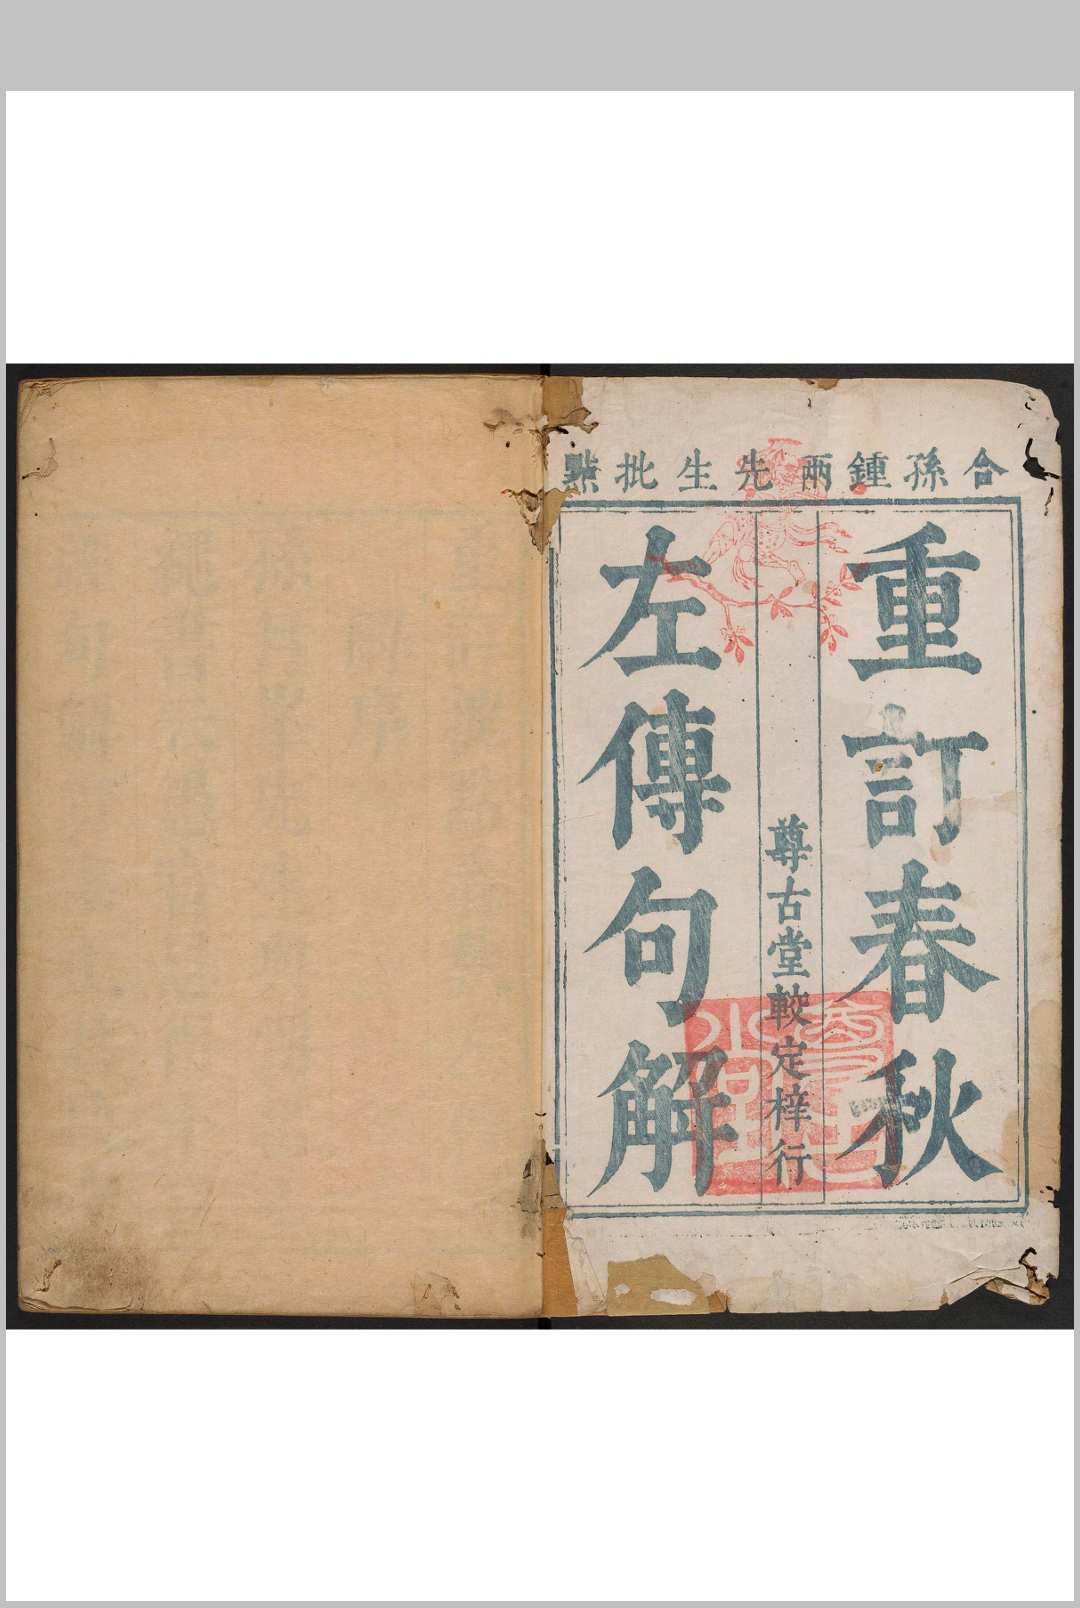 合孫鍾兩先生批點
重訂春秋
尊古堂較定梓行
左傳句解